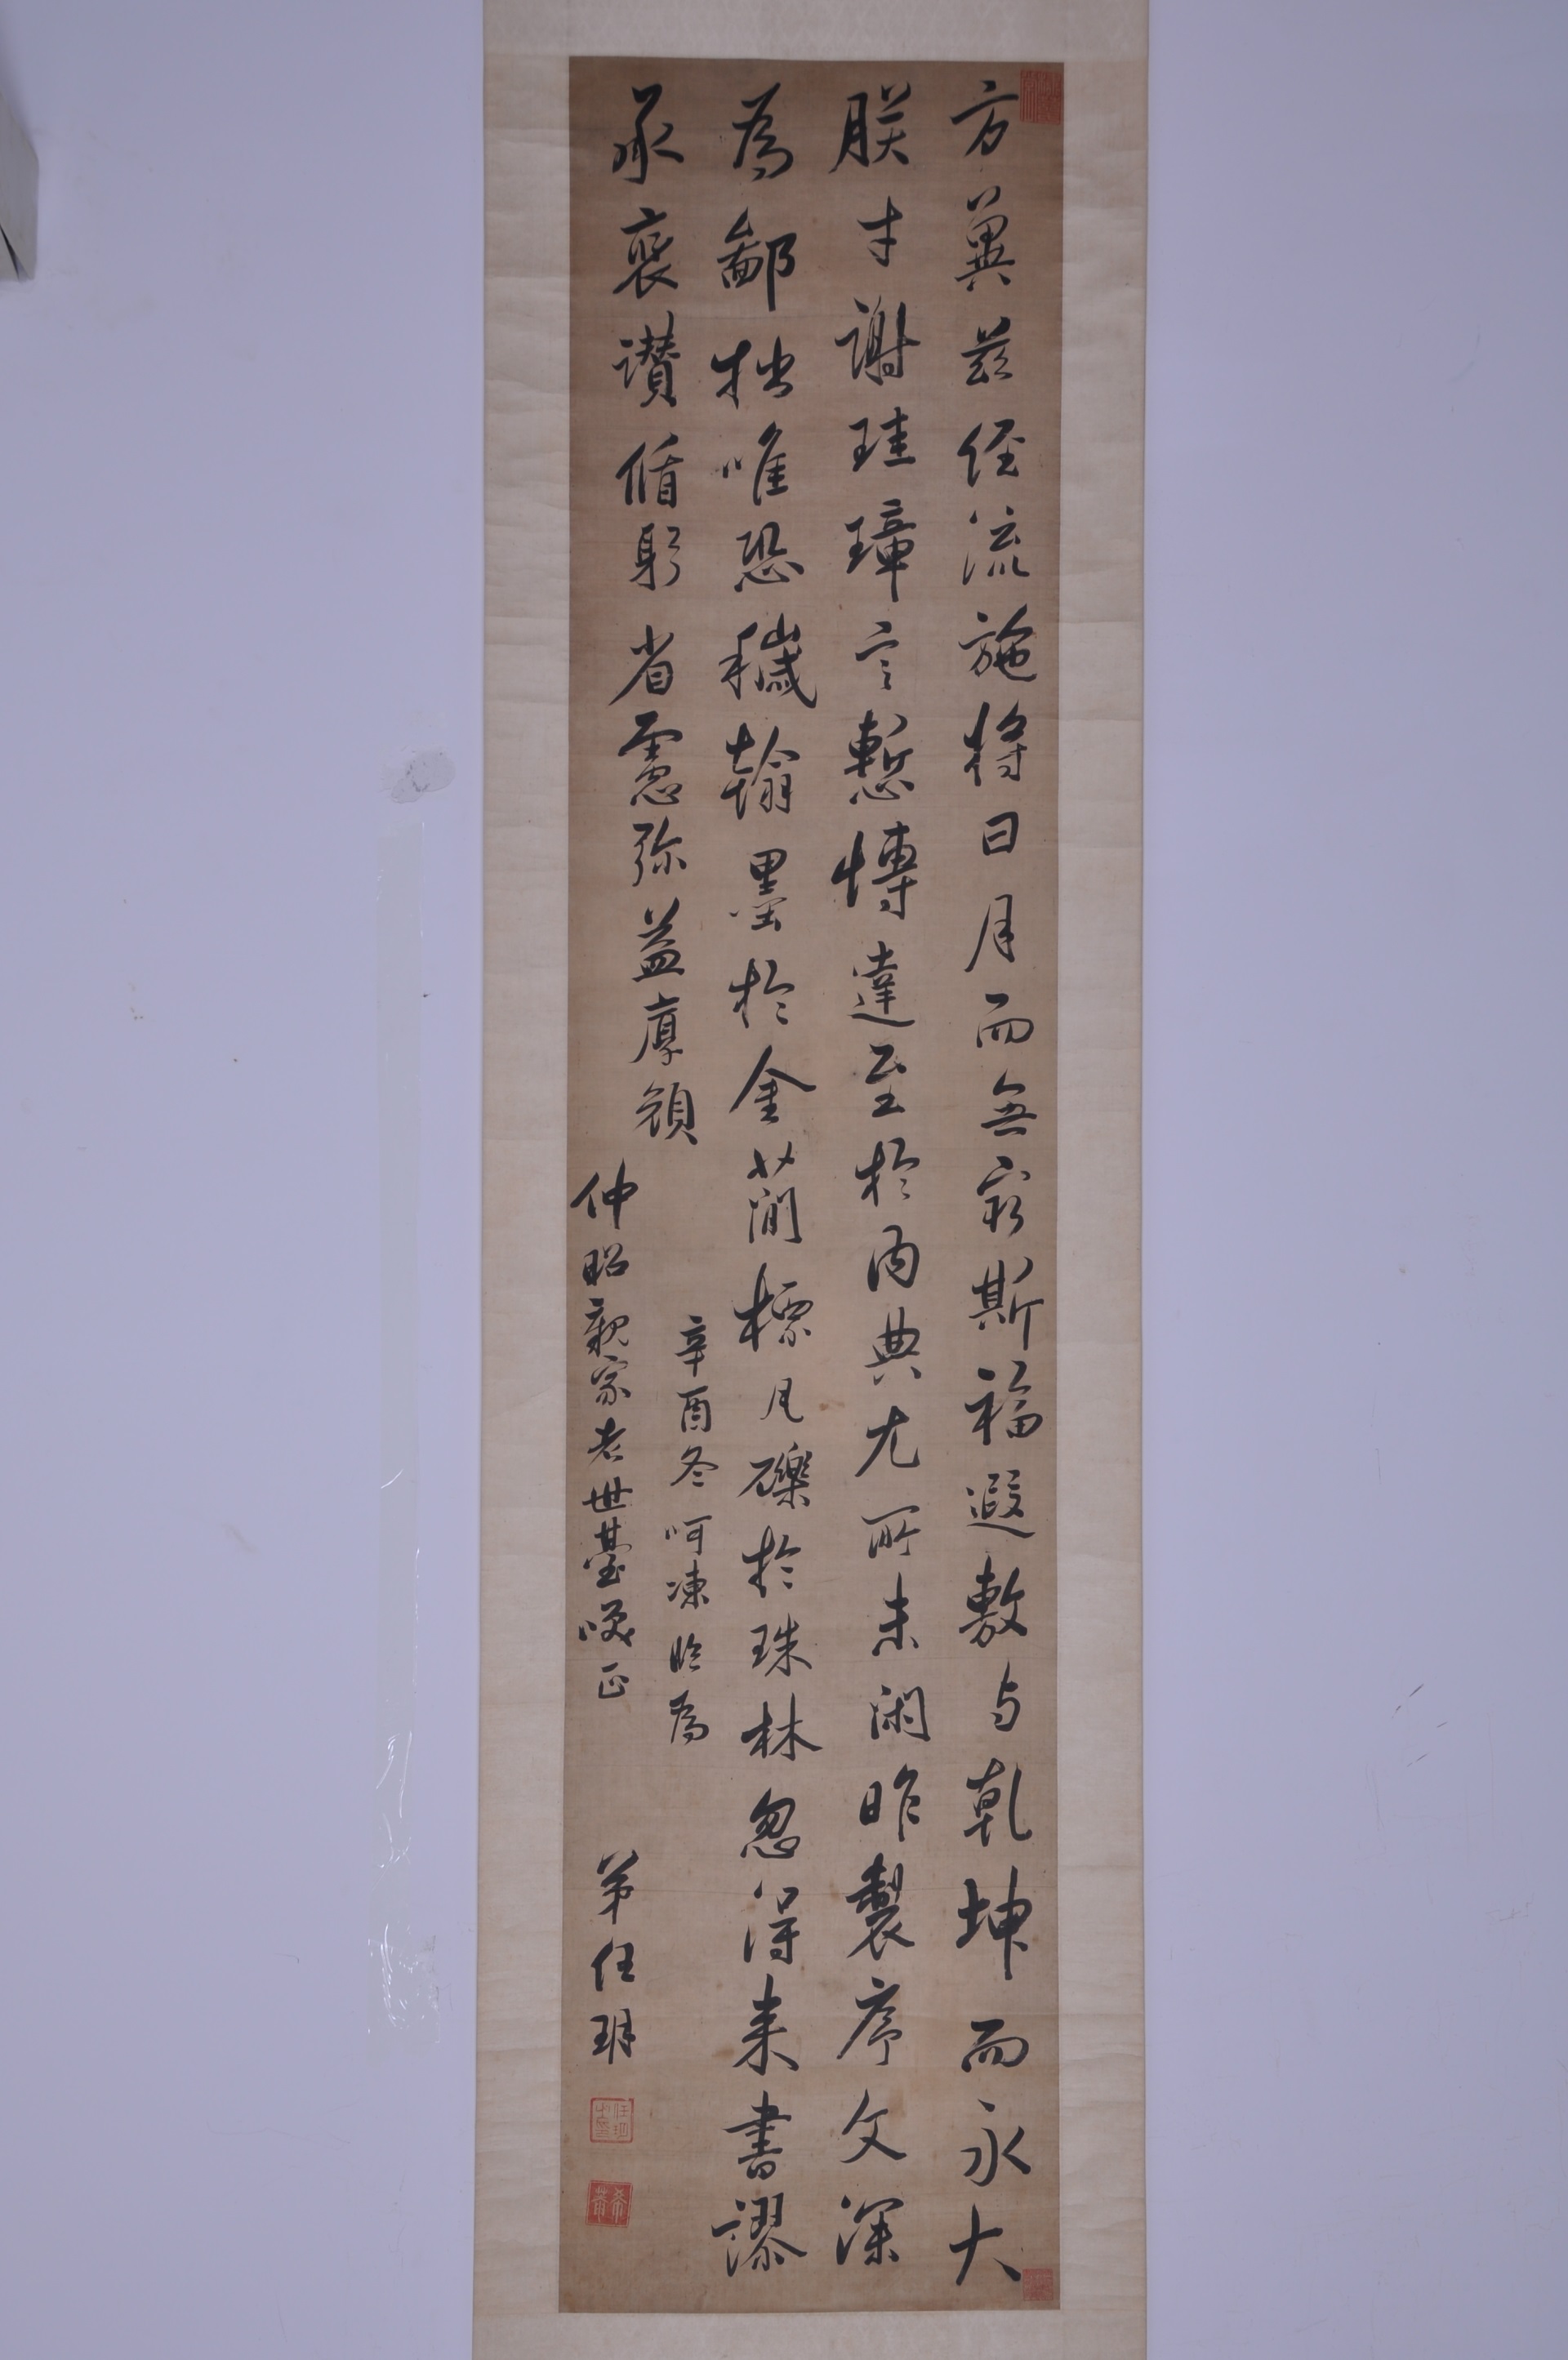 方冀茲经流施将日月而無穷斯福遐敷与乾坤而永大
朕才謝珪璋言慙博達至於内典尤所未閑昨製序文深
為鄙拙唯恐穢翰墨於金蕳標凡礫於珠林忽得来書謬
承褒讃循躬省慮弥益厚顔
辛酉冬呵凍临為
仲昭親家老世臺唉正
弟任玥